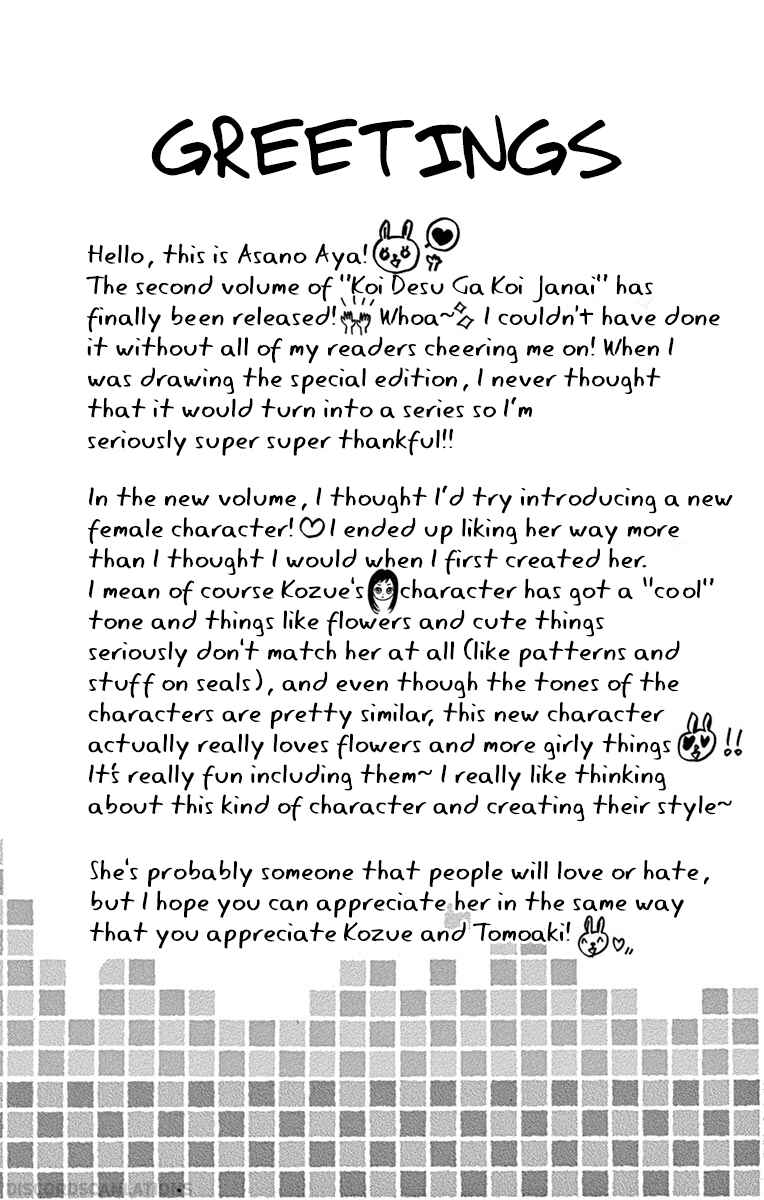 GREETINGS
Hello, this is Asano Aya!
The second volume of "Koi Desu Ga Koi Janai" has
finally been released! Whoa~ I couldn't have done
it without all of my readers cheering me on! When I
was drawing the special edition, I never thought
that it would turn into a series so I'm
seriously super super thankful!!
In the new volume, I thought I'd try introducing a new
female character! I ended up liking her way more
than I thought I would when I first created her.
I mean of course Kozue's character has got a "cool"
tone and things like flowers and cute things
seriously don't match her at all (like patterns and
stuff on seals), and even though the tones of the
characters are pretty similar, this new character
actually really loves flowers and more girly things !!
It's really fun including them~ I really like thinking
about this kind of character and creating their style~
She's probably someone that people will love or hate,
but I hope you can appreciate her in the same way
that you appreciate Kozue and Tomoaki!
DISCORDSCANLATIONS